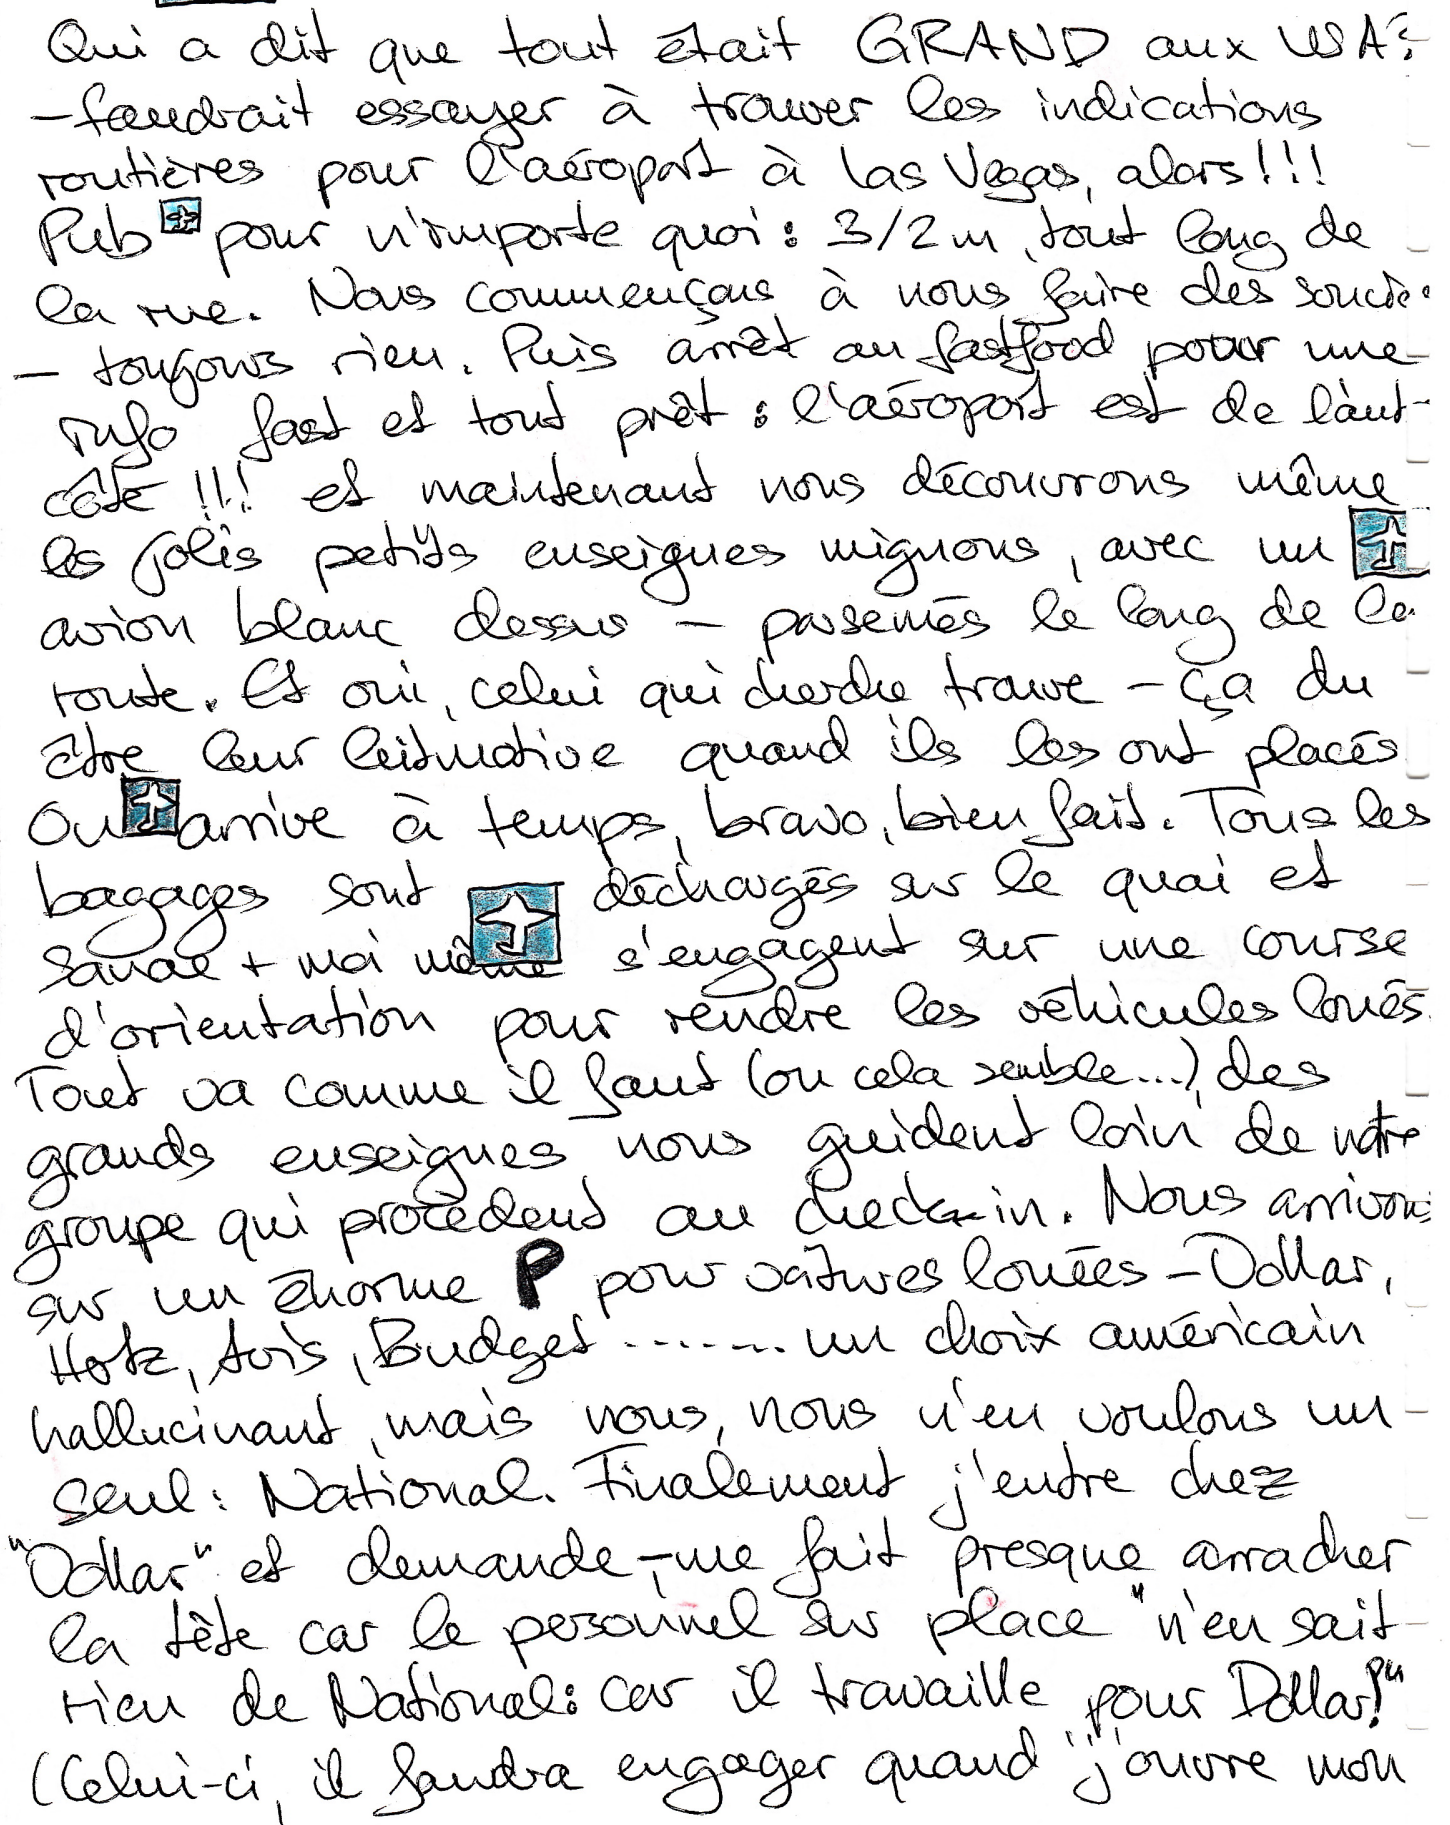 Qui a dit que tout était GRAND aux USA?
- faudrait essayer à trouver les indications
routières pour l'aéroport à Las Vegas, alors!!!
Pub pour n'importe quoi: 3/2m, tout long de
la rue. Nous commençons à nous faire des soucis
- toujours rien. Puis arrêt au fastfood pour une
info fast et tout prêt: l'aéroport est de l'aut-
côté !!! et maintenant nous découvrons même
les jolis petits enseignes mignons, avec un
avion blanc dessus - parsemés le long de la
route. Et oui, celui qui cherche trouve - ça du
être leur leitmotive quand ils les ont placés
On arrive à temps, bravo, bien fait. Tous les
bagages sont déchargés sur le quai et
+ moi même s'engagent sur une course
d'orientation pour rendre les véhicules loués.
Tout va comme il faut (ou cela semble...) des
grands enseignes nous guident loin de notre
groupe qui procèdent au check-in. Nous arrivons
sur un énorme P pour voitures louées - Dollar,
Hertz, Avis, Budget ....... un choix américain
hallucinant, mais nous, nous n'en voulons un
seul: National. Finalement j'entre chez
"Dollar" et demande, - me fait presque arracher
la tête car le personnel sur place "n'en sait
rien de National: car il travaille pour Dollar!"
(Celui-ci, il faudra engager quand j'ouvre mon